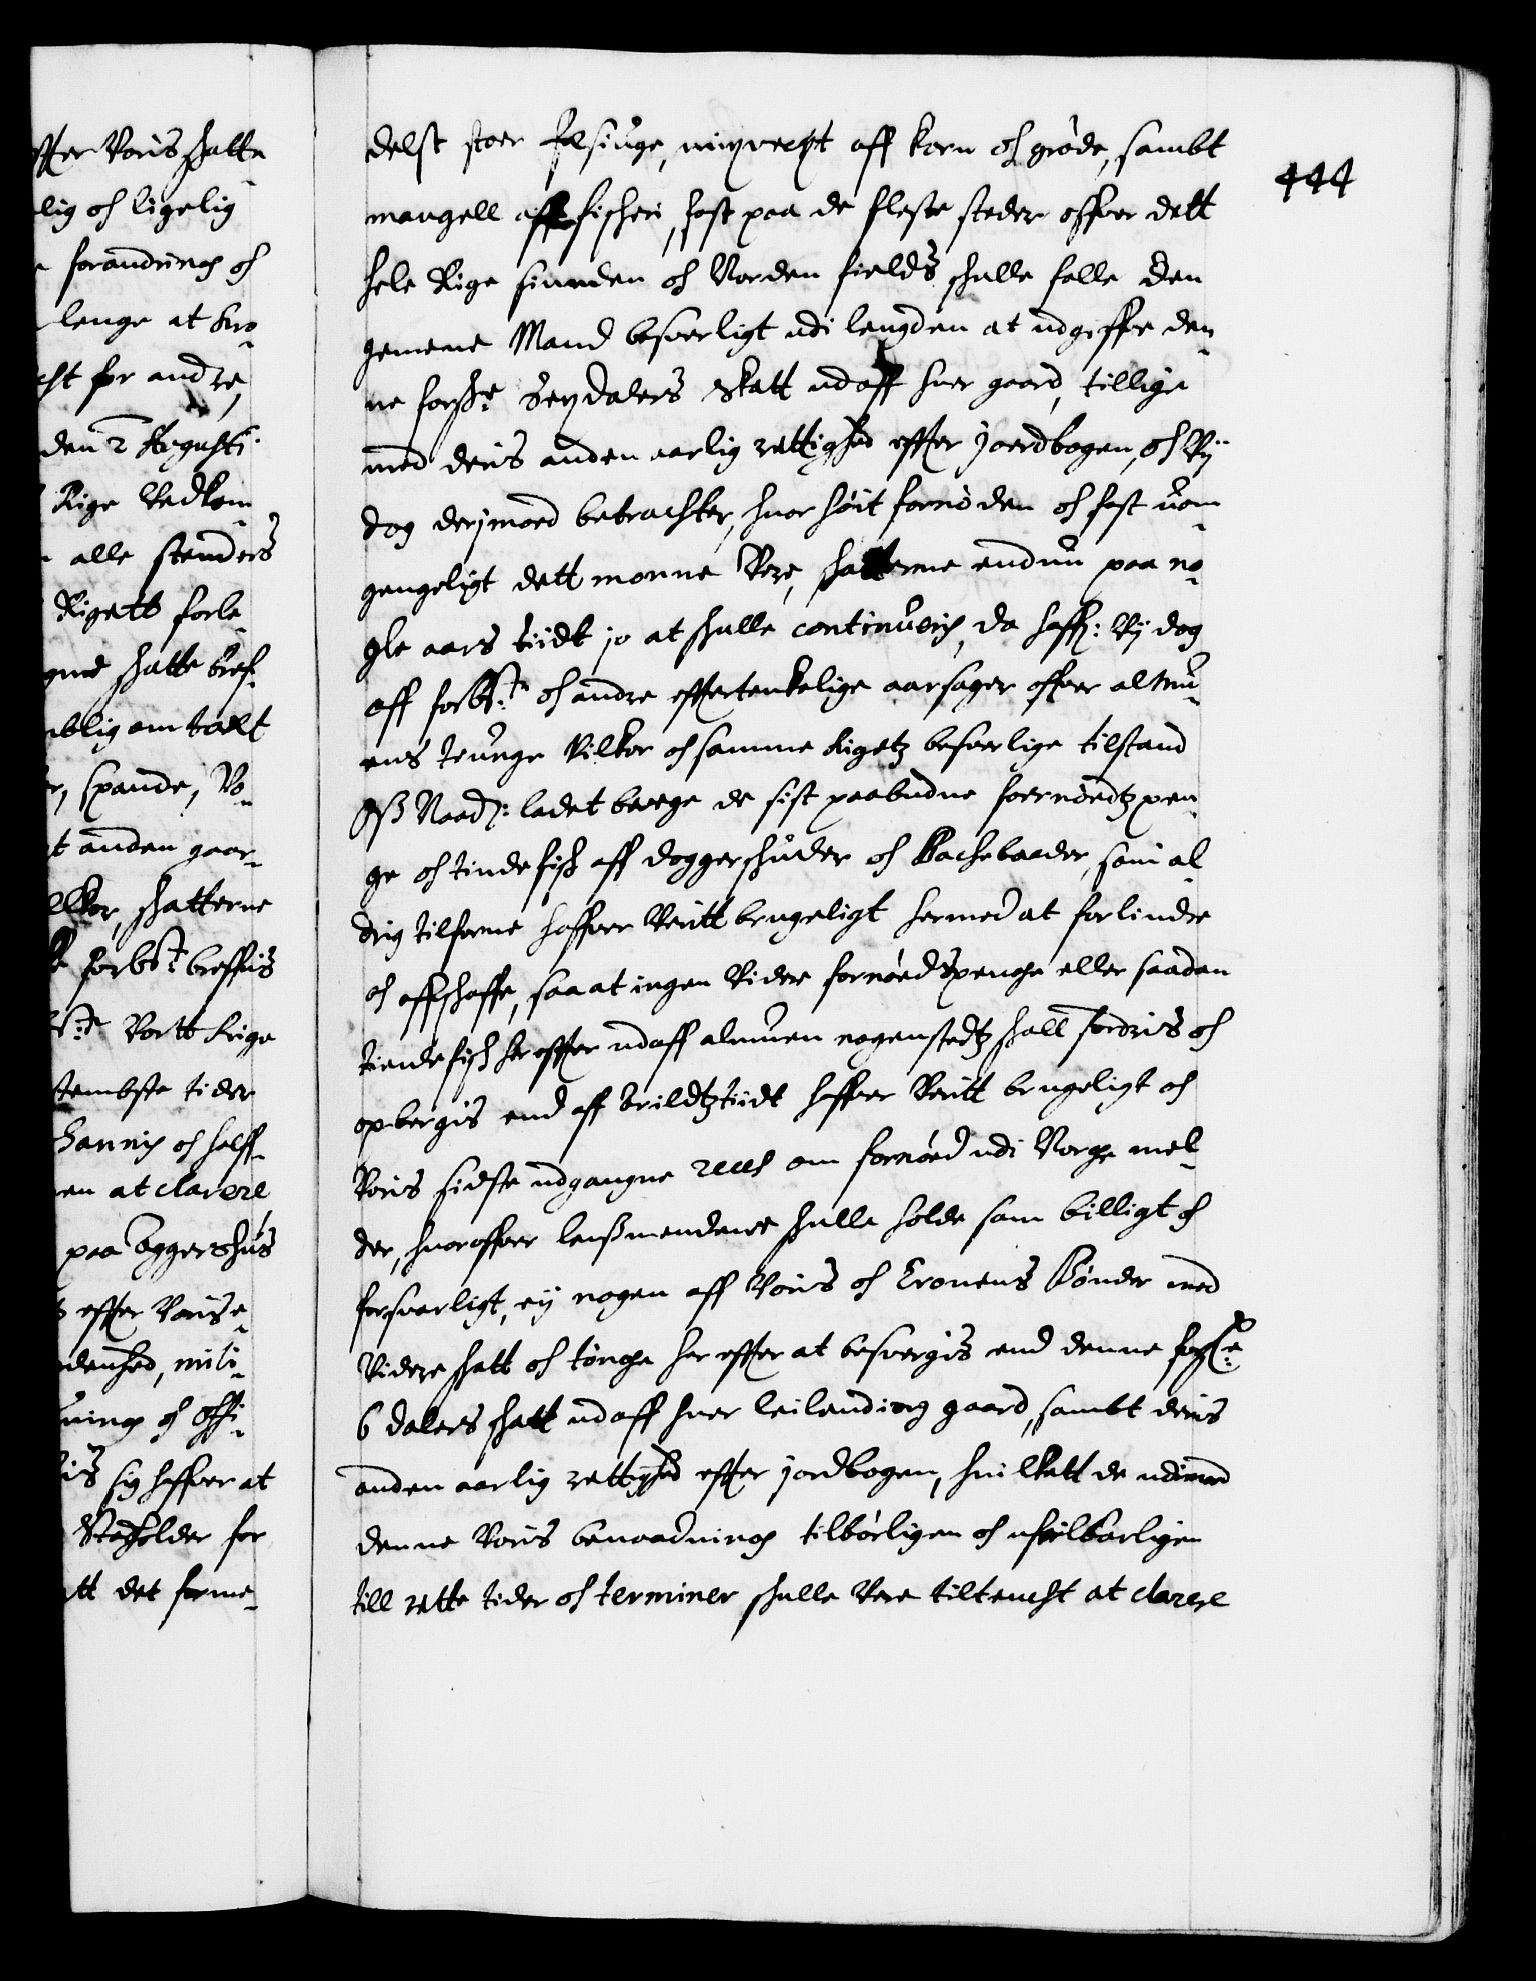 ffter Voris skatte
lig och ligelig
forandring och
lenge at bro
cht for andre,
den 2 Augusti
Rige Vedkom
alle stenders
Rigett forle
gne skatte bref
blig omtalt
r, spande, Vo
t anden gaar
lkor, skatterne
forbte: breffuis
te: Vortt Rige
tembste tider
ganning och halff
en at clarere
paa Aggershus
effter Voris
denhed, mili
ning och offi
is sig haffuer at
Statholder for
tt det forme
444
delst stoer siuge, misvext aff korn och grøde, sambt
mangell aff fischeri, fast paa de fleste steder offuer dett
hele Rige sunden och Norden fields skulle falle den
gemene Mand besverligt udi lengden at udgiffue den
ne forskne: Sexdalers skatt udaff huer gaard, tillige
med deris anden aarlig rettighed effter jordbogen, och Vij
dog derjmoed betrachter, huor høit fornøden och fast uom
gengeligt dett monne Vere, skatterne endnu paa no
gle aars tiidt jo at skulle continuéris, da haffr: Vij dog
aff forbte: och andre effertenkelige aarsager offuer almu
ens tounge Vilkor och samme Rigetz besverlige tilstand
Oss Naadr: ladet beuege de sist paabudne foernødtzpen
ge och tindefisk aff doggerskuder och Backebaader, som al
drig tilforne haffuer Veritt brugeligt hermed at forlindre
och affskaffe, saa at ingen Videre fornødspenge eller saadan
tiendefisk her effter udaff almuen nogenstedtz skall fordris och
opbergis end aff Arildtztiidt haffuer Veritt brugeligt och
Voris sidste udgangne reces om fornød udi Norge mel
der, huoroffuer lensmendene skulle holde som billigt och
forsvarligt, ej nogen aff Voris och Cronens Bønder med
Videre skatt och tønge her effter at besvergis end denne forskne:
6 dalers skatt udaff huer leilending gaard, sambt deris
anden aarlig rettighed effter jordbogen, huilkett de udimod
denne Voris benaadning tilbørligen och ufeilbarligen
till rette tider och terminer skulle Vere tiltencht at clarere